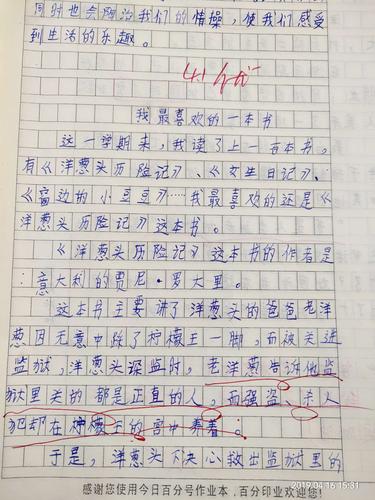 同时也会陶冶我们的情操，使我们感受
到生活的乐趣。
我最喜欢的一本书
这一学期来，我读了上一百本书。
有《洋葱头历险记》、《女生日记》、
《窗边的小豆豆》……我最喜欢的还是《
洋葱头历险记》这本书。
《洋葱头历险记》这本书的作者是
：意大利的贾尼·罗大里。
这本书主要讲了洋葱头的爸爸老洋
葱因无意中踩了柠檬王一脚，而被关进
监狱，洋葱头探监时，老洋葱告诉他监
狱里关的都是正直的人，而强盗、杀人
犯却在柠檬王的宫中养着。
于是，洋葱头下决心救出监狱里的
感谢您使用今日百分号作业本，百分印业欢迎您！
2019.04.16 15:31